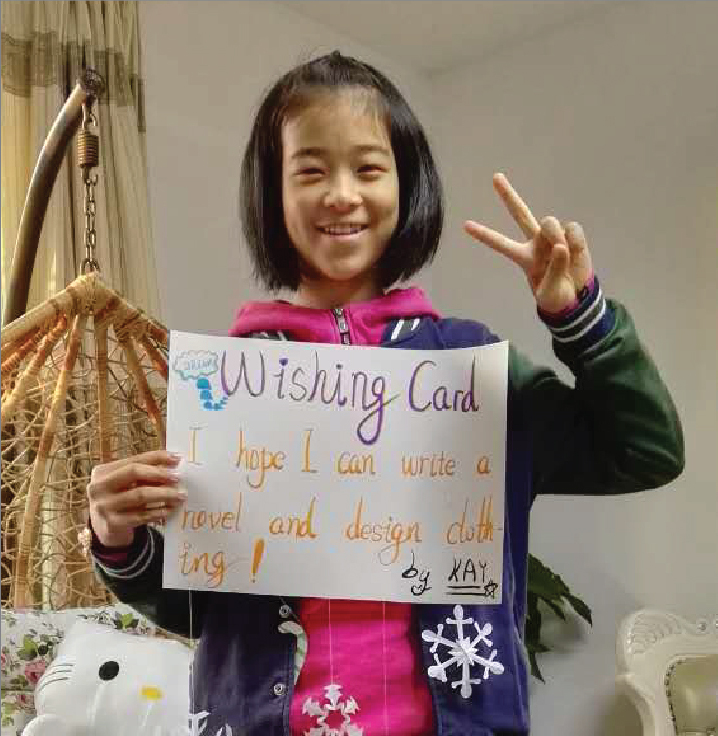 DREAM
Wishing Card
I hope I can write a
novel and design cloth-
ing!
by KAY